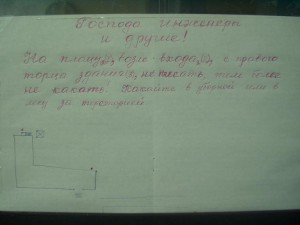 Господа инженеры
и другие!
На плану, возле входа, с правого
торца здания, не писать, тем более
не какать. Какайте в уборной или в
лесу за территорией